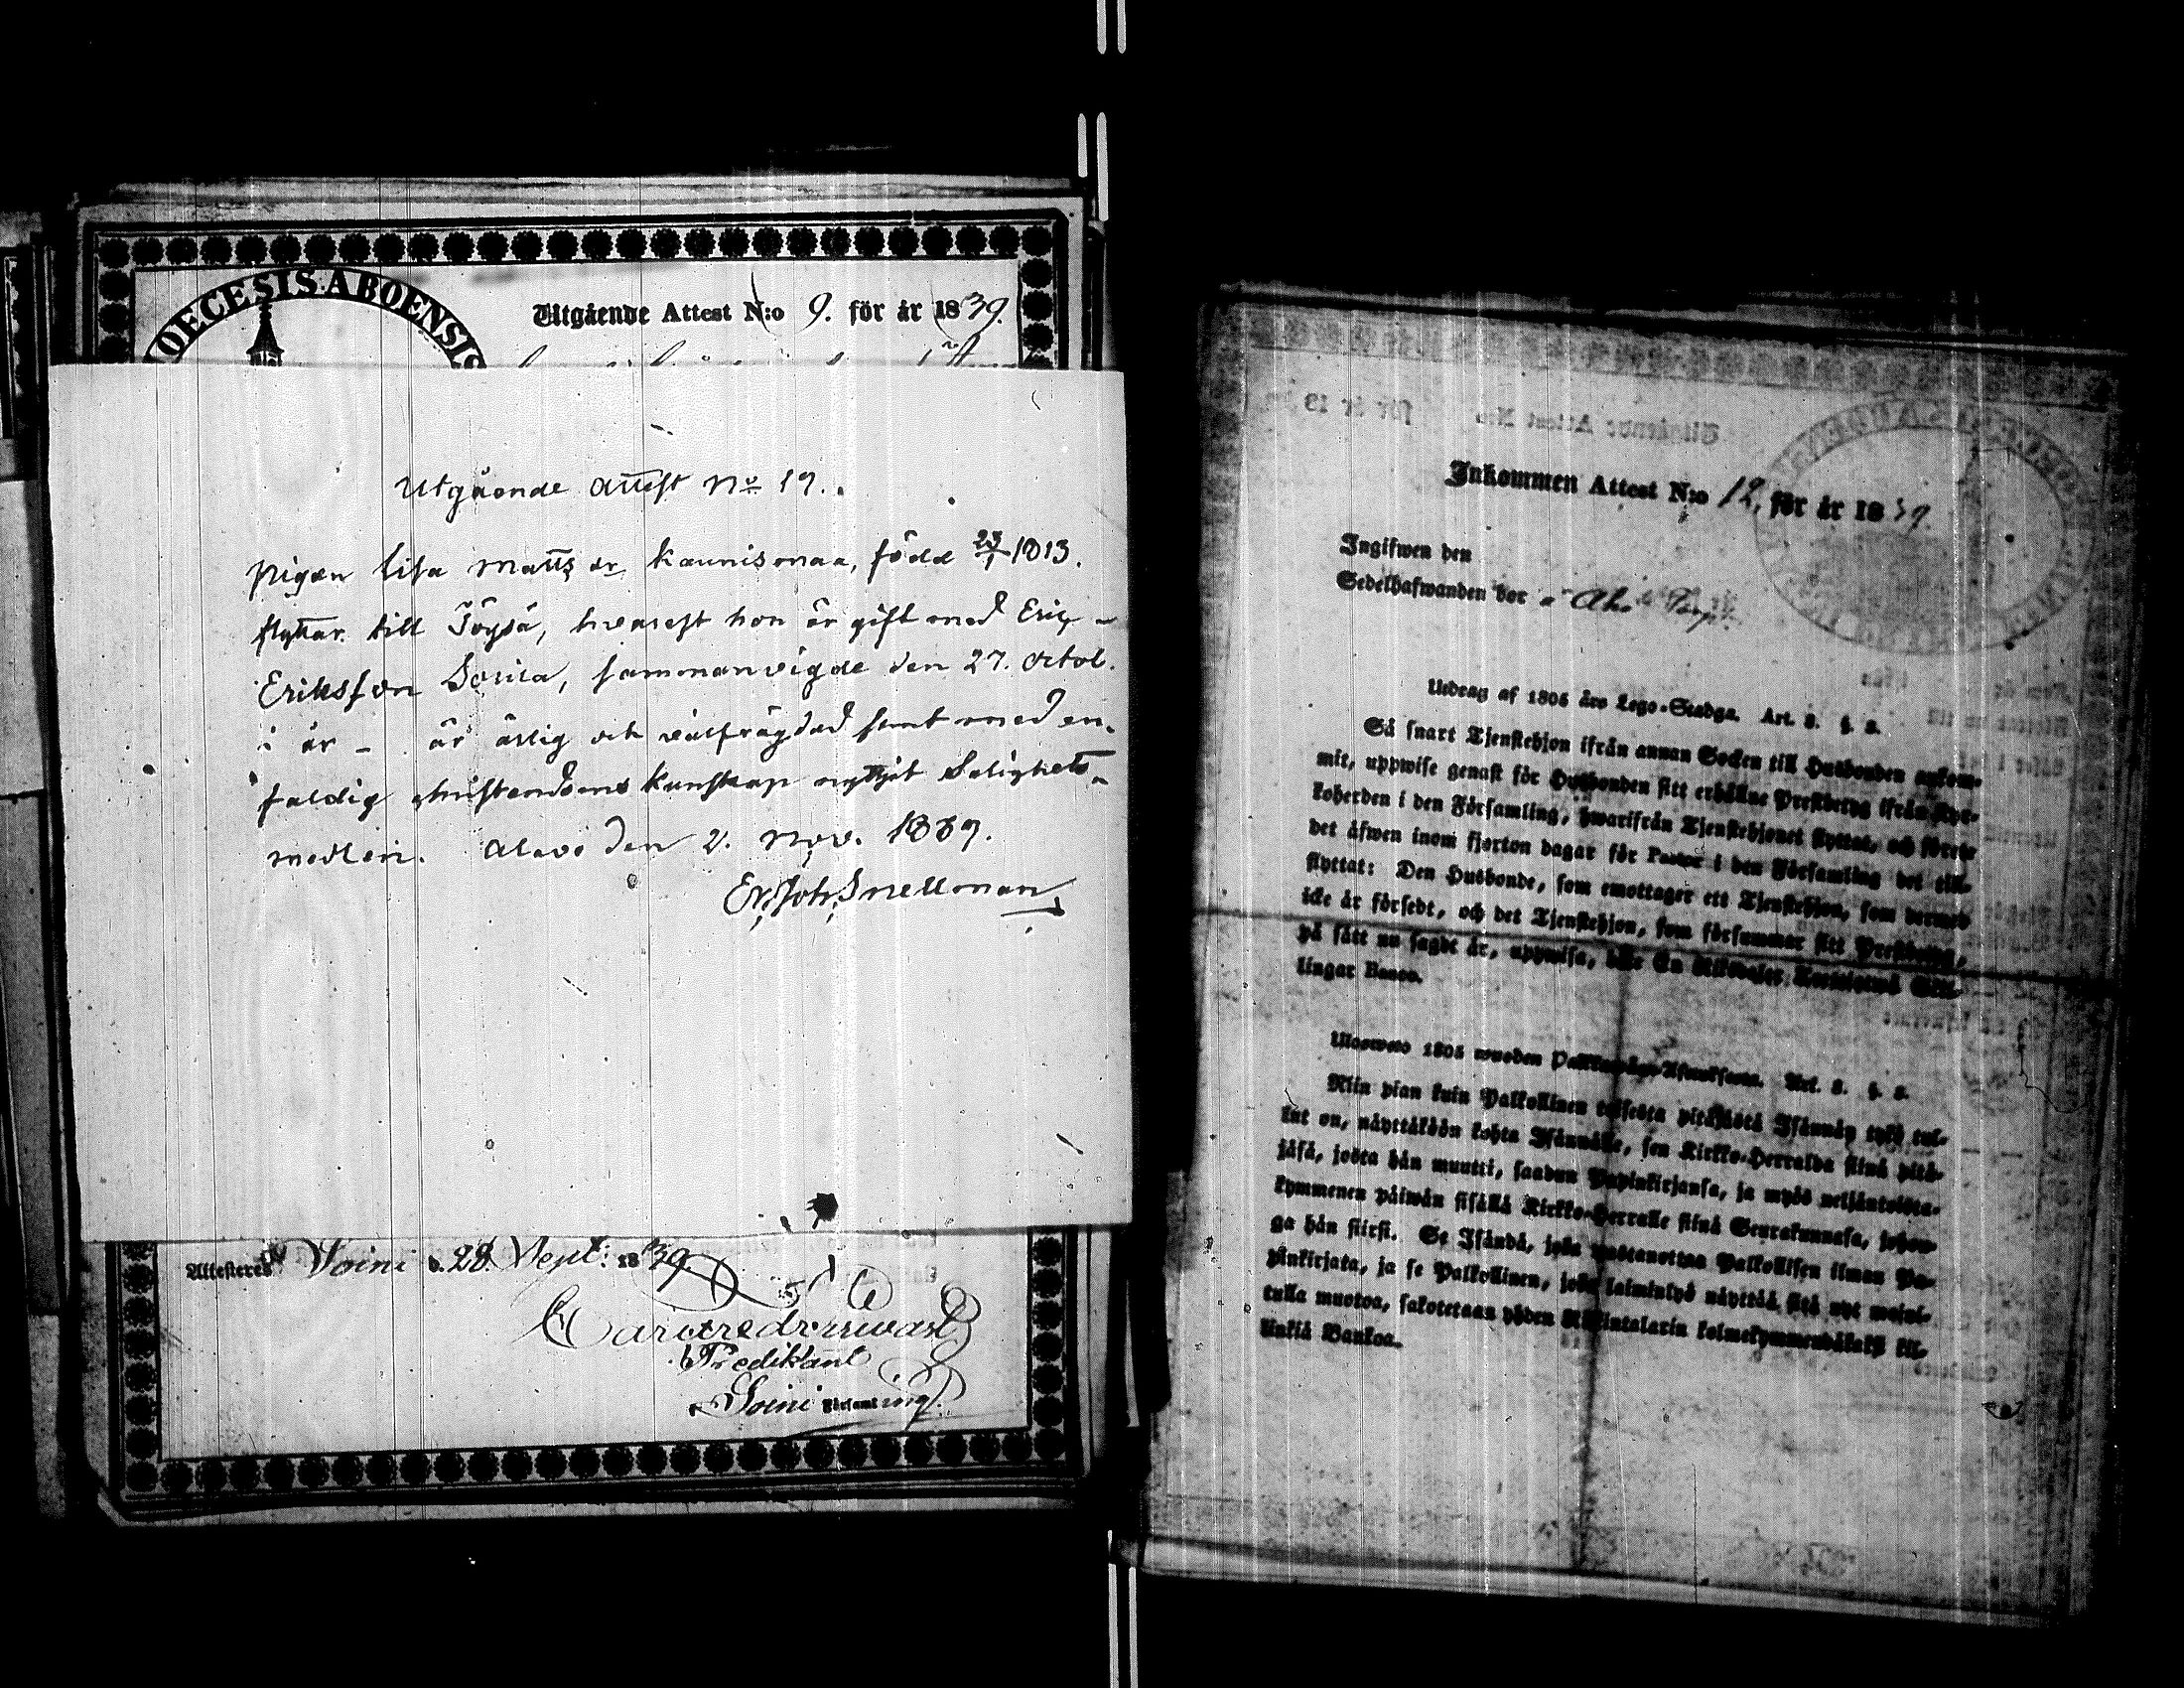 DIOECESIS ABOENSIS
Utgående Attest N:o 9. för år 1839.
Utgående Attest No 19.
Pigan Lisa Matts dr Kaunismaa, född 23/1 1813.
flyttar till Töysä, hvarest hon är gift med Eric
Eriksson Sorila, sammanvigde den 27. Octob.
i år – är ärlig och välfrägdad samt med en-
faldig christendoms kunskap nyttjat Salighets-
medlen. Alavo den 2. Nov. 1839.
Er. Joh. Snellman
Attesteres Soini d. 28. Sept: 1839.
Predikant
Soini Församling.
Inkommen Attest N:o 12, för år 1839.
Ingifwen den
Sedelhafwanden bor
Utdrag af 1805 års Lego-Stadga. Art. 3. §. 8.
Så snart Tjenstehjon ifrån annan Socken till Husbonden ankom-
mit, uppwise genast för Husbonden sitt erhållne Prestbetyg ifrån Kyr-
koherden i den Församling, hwarifrån Tjenstehjonet flyttat, och förete
det äfwen inom fjorton dagar för Pastor i den Församling det till-
flyttat: Den Husbonde, som emottager ett Tjenstehjon, som dermed
icke är försedt, och det Tjenstehjon, som försummar sitt Prestbetyg,
på sätt nu sagdt är, uppwisa, böte En Riksdaler Trettiotwå Skil-
lingar Banco.
Ulosweto 1805 wuoden Art. 3. §. 8.
Niin pian kuin Palkollinen toisesta pitäjästä Isännän tykö tul-
lut on, näyttäköön kohta Isännälle, sen Kirkko-Herralda siinä pitä-
jäsä, josta hän muutti, saadun Papinkirjansa, ja myös neljäntoista-
kymmenen päiwän sisällä Kirkko-Herralle siinä Seurakunnasa, johon-
ga hän siirsi. Se Isändä, joka wastanottaa Palkollisen ilman Pa-
pinkirjata, ja se Palkollinen, joka laiminlyö näyttää sitä nyt maini-
tulla muotoa, sakotetaan yhden Riikintalarin kolmekymmendäkaksi kil-
linkiä Bankoa.